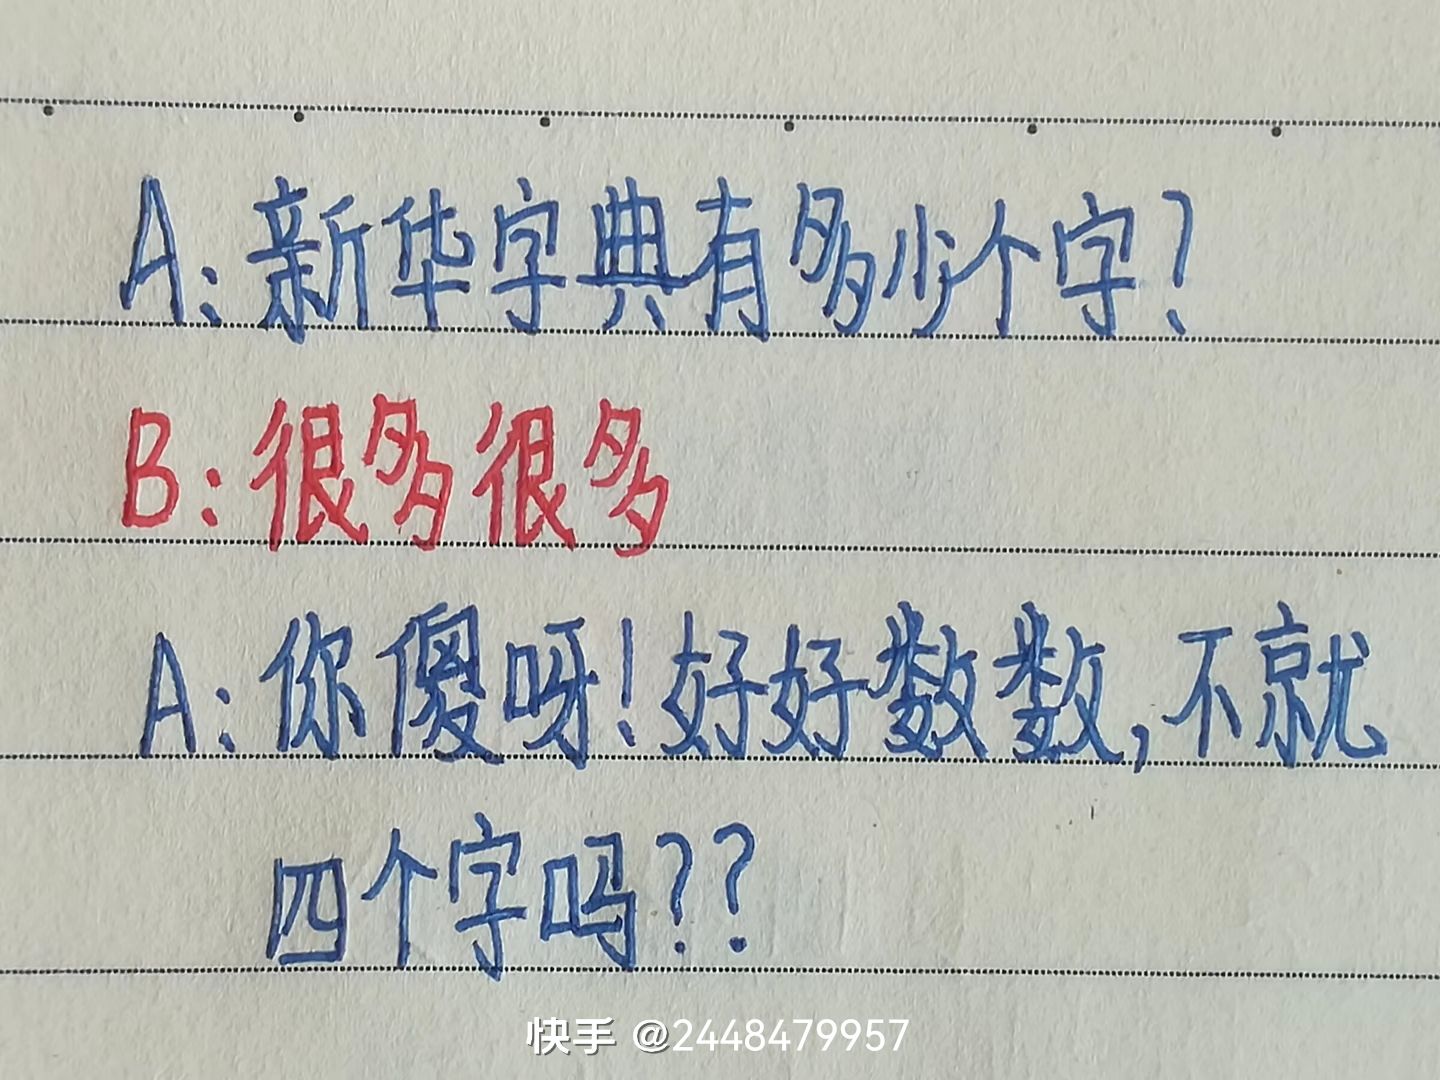 A:新华字典有多少个字?
B:很多很多
A:你傻呀!好好数数,不就
四个字吗??
快手 @2448479957